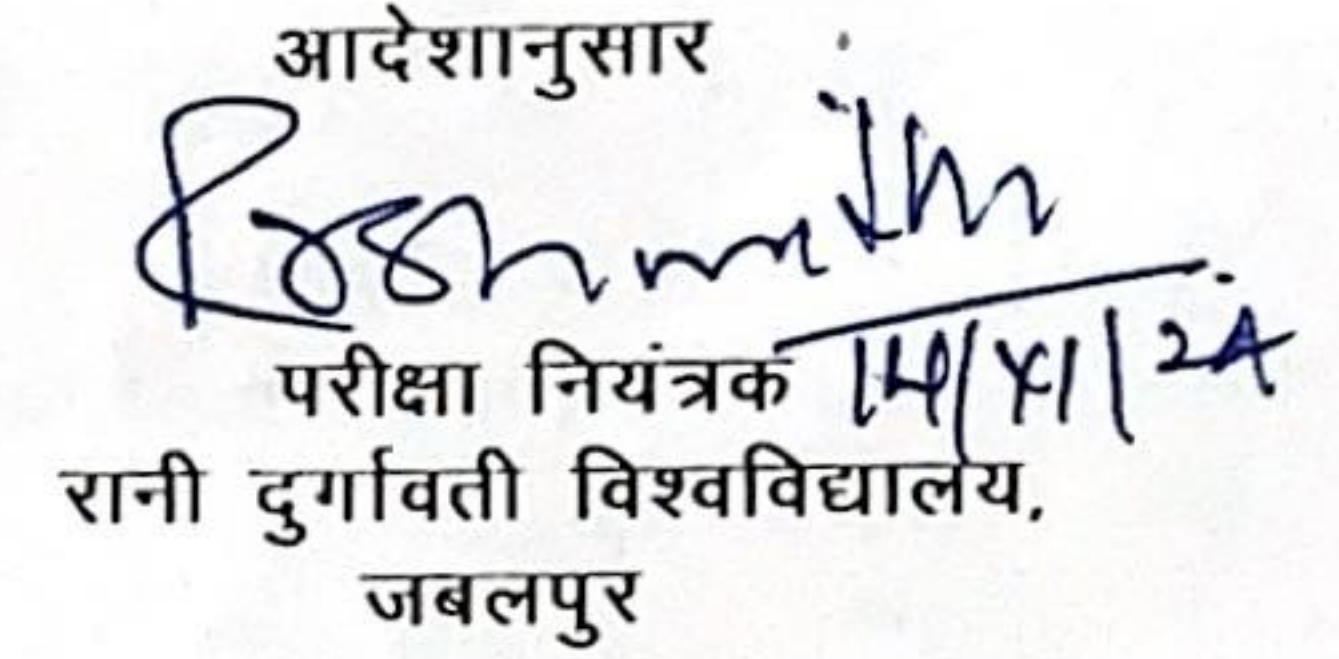 आदेशानुसार
परीक्षा नियंत्रक 14/XI/24
रानी दुर्गावती विश्वविद्यालय,
जबलपुर